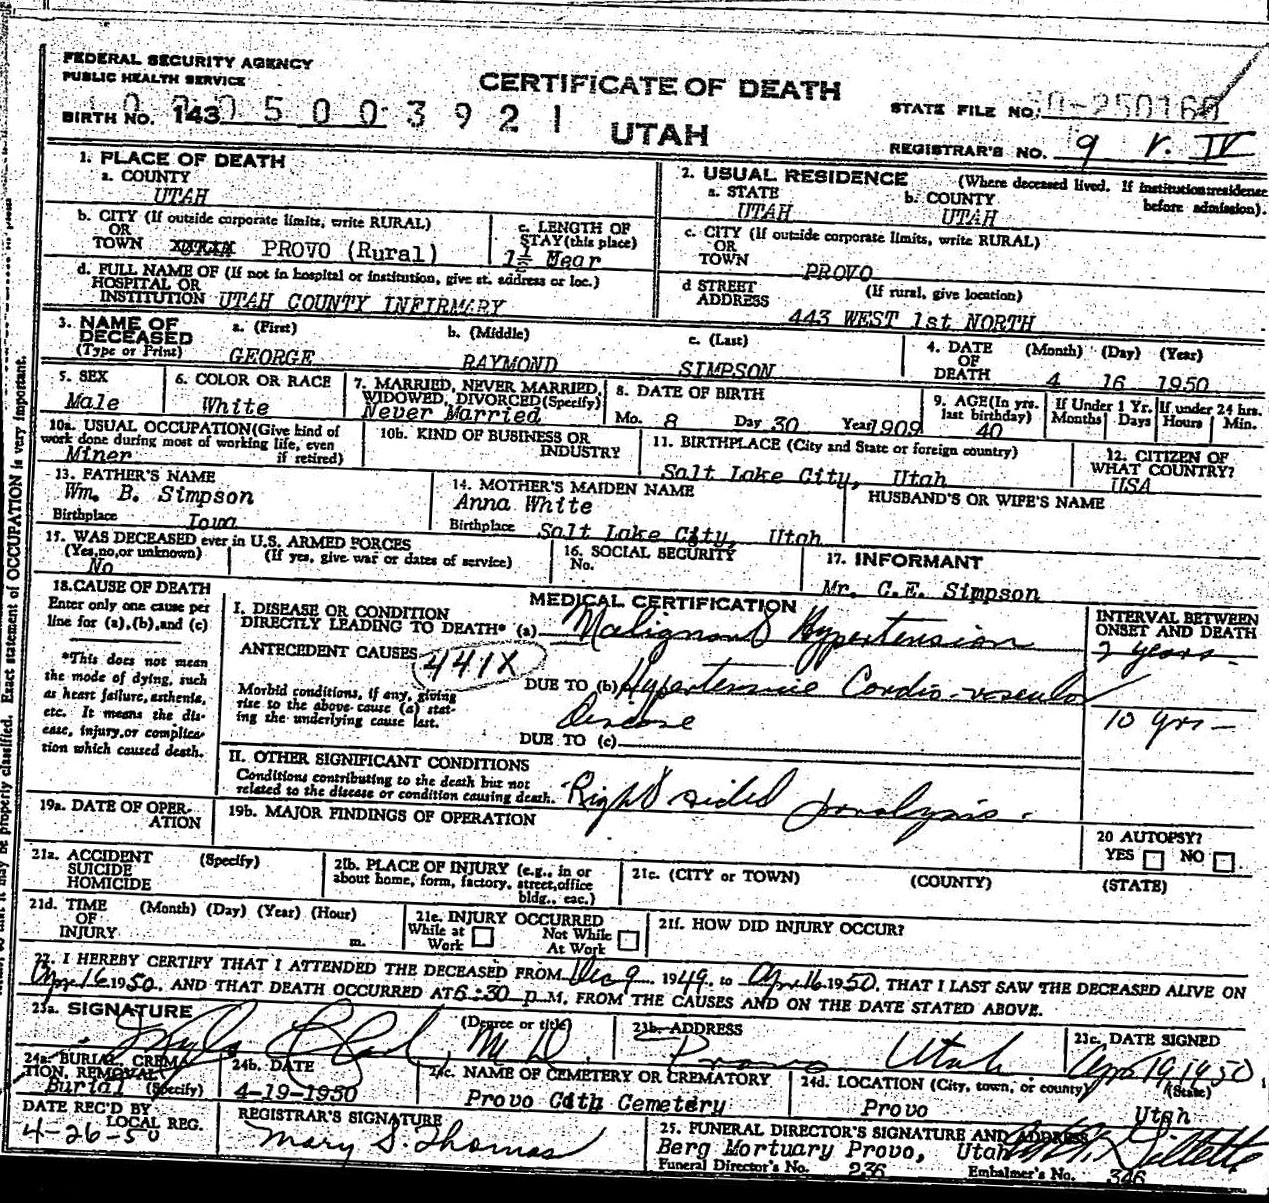 FEDERAL SECURITY AGENCY
PUBLIC HEALTH SERVICE
CERTIFICATE OF DEATH
UTAH
BIRTH NO. 143
STATE FILE NO.
REGISTRAR'S NO. 9 V. IV
1. PLACE OF DEATH
a. COUNTY
UTAH
b. CITY (If outside corporate limits, write RURAL)
OR
TOWN PROVO (Rural)
c. LENGTH OF
STAY (this place)
1½ Mear
d. FULL NAME OF (If not in hospital or institution, give st. address or loc.)
HOSPITAL OR
INSTITUTION UTAH COUNTY INFIRMARY
2. USUAL RESIDENCE (Where deceased lived. If institution: residence
before admission).
a. STATE b. COUNTY
UTAH UTAH
c. CITY (If outside corporate limits, write RURAL)
OR
TOWN PROVO
d STREET (If rural, give location)
ADDRESS
443 WEST 1st NORTH
3. NAME OF
DECEASED
(Type or Print)
a. (First) b. (Middle) c. (Last)
GEORGE RAYMOND SIMPSON
4. DATE (Month) (Day) (Year)
OF
DEATH 4 16 1950
5. SEX
Male
6. COLOR OR RACE
White
7. MARRIED, NEVER MARRIED,
WIDOWED, DIVORCED (Specify)
Never Married
8. DATE OF BIRTH
Mo. 8 Day 30 Year 1909
9. AGE (In yrs.
last birthday)
40
If Under 1 Yr.
Months Days
If under 24 hrs.
Hours Min.
10a. USUAL OCCUPATION (Give kind of
work done during most of working life, even
if retired)
Miner
10b. KIND OF BUSINESS OR
INDUSTRY
11. BIRTHPLACE (City and State or foreign country)
Salt Lake City, Utah
12. CITIZEN OF
WHAT COUNTRY?
USA
13. FATHER'S NAME
Wm. B. Simpson
Birthplace Iowa
14. MOTHER'S MAIDEN NAME
Anna White
Birthplace Salt Lake City, Utah
HUSBAND'S OR WIFE'S NAME
15. WAS DECEASED ever in U.S. ARMED FORCES
(Yes, no, or unknown) (If yes, give war or dates of service)
No
16. SOCIAL SECURITY
No.
17. INFORMANT
Mr. C.E. Simpson
18. CAUSE OF DEATH
Enter only one cause per
line for (a), (b), and (c)
*This does not mean
the mode of dying, such
as heart failure, asthenia,
etc. It means the dis-
ease, injury, or complica-
tion which caused death.
MEDICAL CERTIFICATION
I. DISEASE OR CONDITION
DIRECTLY LEADING TO DEATH* (a) Malignant Hypertension
ANTECEDENT CAUSES 441X
Morbid conditions, if any, giving
rise to the above cause (a) stat-
ing the underlying cause last.
DUE TO (b) Hypertensive Cordio-vascular
Disease
DUE TO (c)
INTERVAL BETWEEN
ONSET AND DEATH
2 years -
10 yrs -
II. OTHER SIGNIFICANT CONDITIONS
Conditions contributing to the death but not
related to the disease or condition causing death.
Right sided paralysis.
19a. DATE OF OPER-
ATION
19b. MAJOR FINDINGS OF OPERATION
20 AUTOPSY?
YES NO
21a. ACCIDENT (Specify)
SUICIDE
HOMICIDE
21b. PLACE OF INJURY (e.g., in or
about home, form, factory, street, office
bldg., esc.)
21c. (CITY or TOWN) (COUNTY) (STATE)
21d. TIME (Month) (Day) (Year) (Hour)
OF
INJURY m.
21e. INJURY OCCURRED
While at Not While
Work At Work
21f. HOW DID INJURY OCCUR?
22. I HEREBY CERTIFY THAT I ATTENDED THE DECEASED FROM Dec 9 1949, to Apr. 16 1950, THAT I LAST SAW THE DECEASED ALIVE ON
Apr 16 1950, AND THAT DEATH OCCURRED AT 6:30 p M, FROM THE CAUSES AND ON THE DATE STATED ABOVE.
23a. SIGNATURE (Degree or title)
M.D.
23b. ADDRESS
Provo Utah
23c. DATE SIGNED
Apr 19, 1950
24a. BURIAL, CREMA-
TION, REMOVAL
Burial (Specify)
24b. DATE
4-19-1950
24c. NAME OF CEMETERY OR CREMATORY
Provo Cith Cemetery
24d. LOCATION (City, town, or county) (State)
Provo Utah
DATE REC'D BY
LOCAL REG.
4-26-50
REGISTRAR'S SIGNATURE
Mary S. Thomas
25. FUNERAL DIRECTOR'S SIGNATURE AND ADDRESS
Berg Mortuary Provo, Utah
Funeral Director's No. 236 Embalmer's No. 346
Exact statement of OCCUPATION is very important.